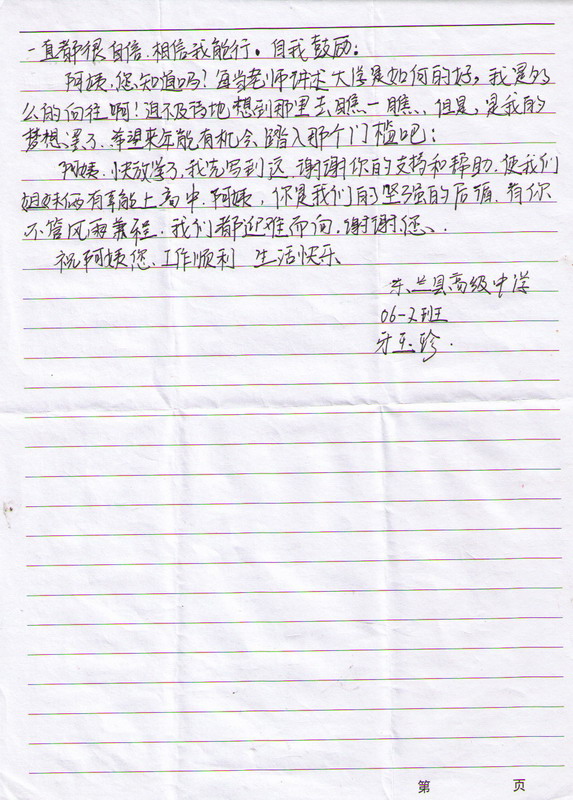 一直都很自信,相信我能行。自我鼓励:
阿姨,您知道吗?每当老师讲述大学是如何的好,我是多
么的向往啊!迫不及待地想到那里去瞧一瞧,但是,是我的
梦想罢了,希望来年能有机会踏入那个门槛吧;
阿姨,快放学了,我先写到这,谢谢你的支持和帮助,使我们
姐妹俩有幸能上高中,阿姨,你是我们的坚强的后盾,有你
不管风雨兼程,我们都迎难而向,谢谢您、
祝阿姨您、工作顺利 生活快乐
东兰县高级中学
06-2班
牙玉珍.
第 页